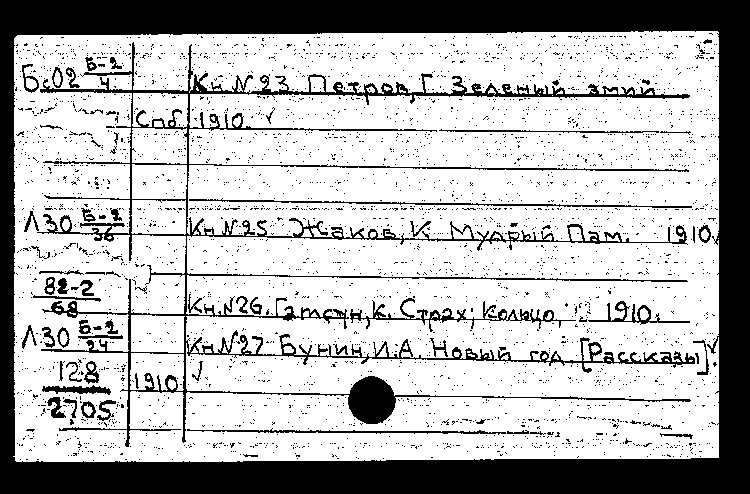 Бс02 Б-2/4 Кн. №23 Петров, Г. Зеленый змий.
Спб. 1910. ✓
Л30 Б-2/36 Кн. №25 Жаков, К. Мудрый Пам. 1910.
82-2/68 Кн. №26. Гамсун, К. Страх; Кольцо, 1910.
Л30 Б-2/24 Кн. №27 Бунин, И.А. Новый год [Рассказы]. ✓
128/2705 1910 ✓